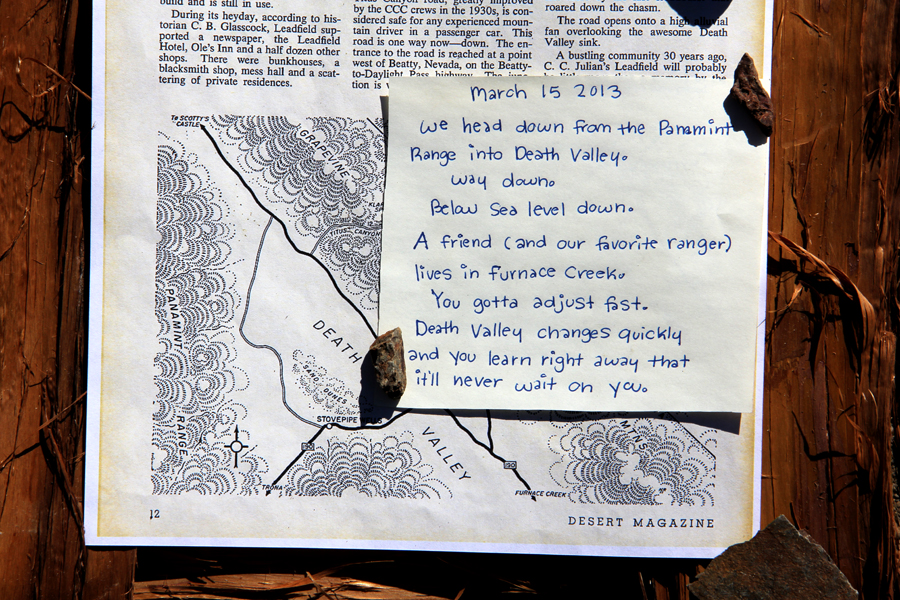 build and is still in use.
During its heyday, according to his-
torian C. B. Glasscock, Leadfield sup-
ported a newspaper, the Leadfield
Hotel, Ole's Inn and a half dozen other
shops. There were bunkhouses, a
blacksmith shop, mess hall and a scat-
tering of private residences.
Canyon road, greatly improved
by the CCC crews in the 1930s, is con-
sidered safe for any experienced moun-
tain driver in a passenger car. This
road is one way now—down. The en-
trance to the road is reached at a point
west of Beatty, Nevada, on the Beatty-
to-Daylight Pass highway. The
tion is
roared down the chasm.
The road opens onto a high alluvial
fan overlooking the awesome Death
Valley sink.
A bustling community 30 years ago,
C. C. Julian's Leadfield will probably
by the
March 15 2013
We head down from the Panamint
Range into Death Valley.
way down.
Below Sea level down.
A friend (and our favorite ranger)
lives in Furnace Creek.
You gotta adjust fast.
Death Valley changes quickly
and you learn right away that
it'll never wait on you.
To SCOTTY'S
CASTLE
GRAPEVINE
TITUS CANYON
PANAMINT
RANGE
DEATH
VALLEY
SAND
DUNES
STOVEPIPE WELLS
TRONA
190
FURNACE CREEK
12
DESERT MAGAZINE